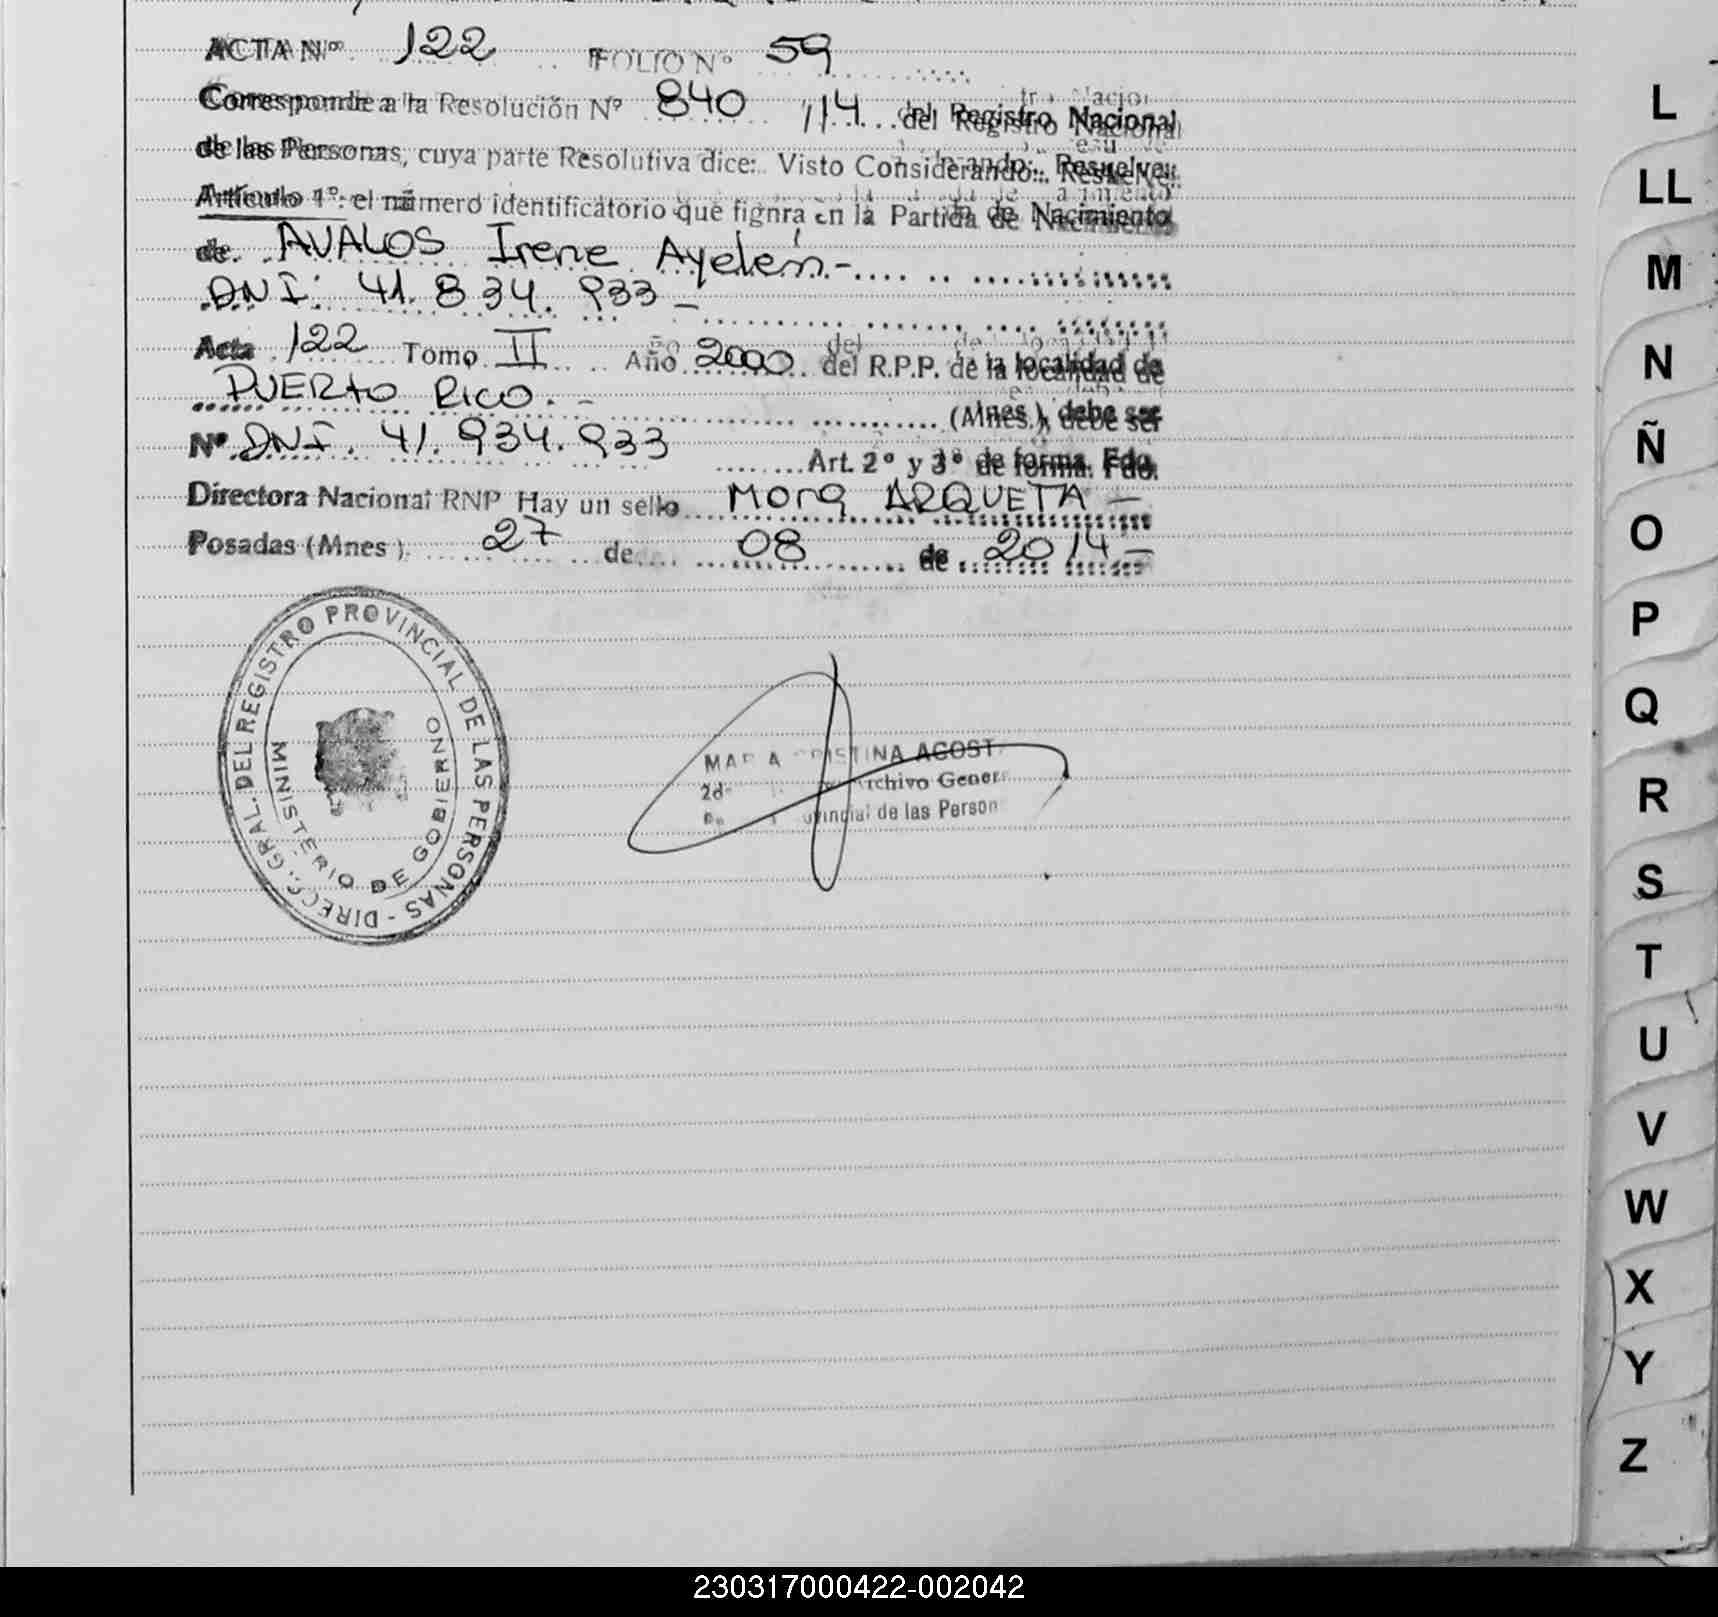 ACTA Nº 122 FOLIO Nº 59
Corresponde a la Resolución Nº 840 /14 del Registro Nacional
de las Personas, cuya parte Resolutiva dice: Visto Considerando: Resuelve:
Artículo 1º: el número identificatorio que fignra en la Partida de Nacimiento
de AVALOS Irene Ayelén.-
DNI: 41.834.933 -
Acta 122 Tomo II Año 2000 del R.P.P. de la localidad de
PUERTO RICO. - (Mnes.), debe ser
Nº DNI. 41.934.933 Art. 2º y 3º de forma. Fdo.
Directora Nacional RNP Hay un sello Mora ARQUETA -
Posadas (Mnes). 27 de 08 de 2014 -
DIRECC. GRAL. DEL REGISTRO PROVINCIAL DE LAS PERSONAS -
MINISTERIO DE GOBIERNO
CRISTINA AGOST
Archivo Gener
de las Person
L
LL
M
N
Ñ
O
P
Q
R
S
T
U
V
W
X
Y
Z
230317000422-002042